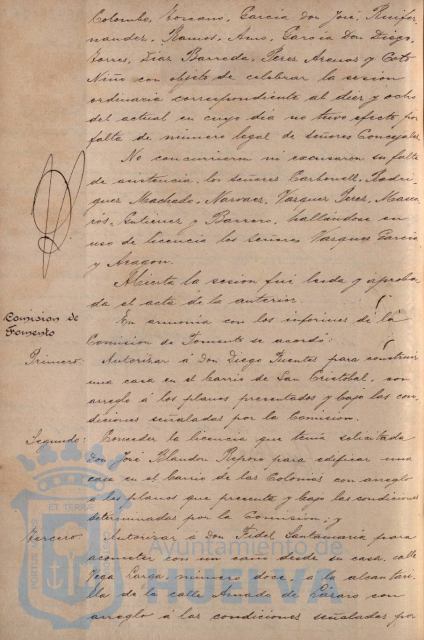 Colombo, Romano, Garcia Don José, Ruifer-
nandez, Ramos, Amo, Garcia Don Diego,
Torres, Diaz Barreda, Perez Aranos y Coto
Niño con objeto de celebrar la sesion
ordinaria correspondiente al diez y ocho
del actual en cuyo dia no tuvo efecto por
falta de número legal de señores Concejales
No concurrieron ni excusaron su falta
de asistencia, los señores Carbonell, Rodri-
guez Machado, Narvaez, Vazquez Perez, Maca-
rós, Gutierrez y Barrero, hallándose en
uso de licencia los señores Vazquez Garcia
y Aragon.
Abierta la sesion fué leida y aproba-
da el acta de la anterior.
Comision de
Fomento
En armonia con los informes de la
Comision de Fomento se acordó:
Primero: Autorizar á Don Diego Fuentes para construir
una casa en el barrio de San Cristobal, con
arreglo á los planos presentados y bajo las con-
diciones señaladas por la Comision.
Segundo: Conceder la licencia que tenia solicitada
Don José Blandon para edificar una
casa en el barrio de las Colonias con arreglo
a los planos que presenta y bajo las condiciones
determinadas por la Comision; y
Tercero: Autorizar á Don Fidel Santamaria para
acometer con un caño desde su casa, calle
Vega Larga, número doce, a la alcantari-
lla de la calle Amado de Lázaro con
arreglo á las condiciones señaladas por
Ayuntamiento de
HUELVA